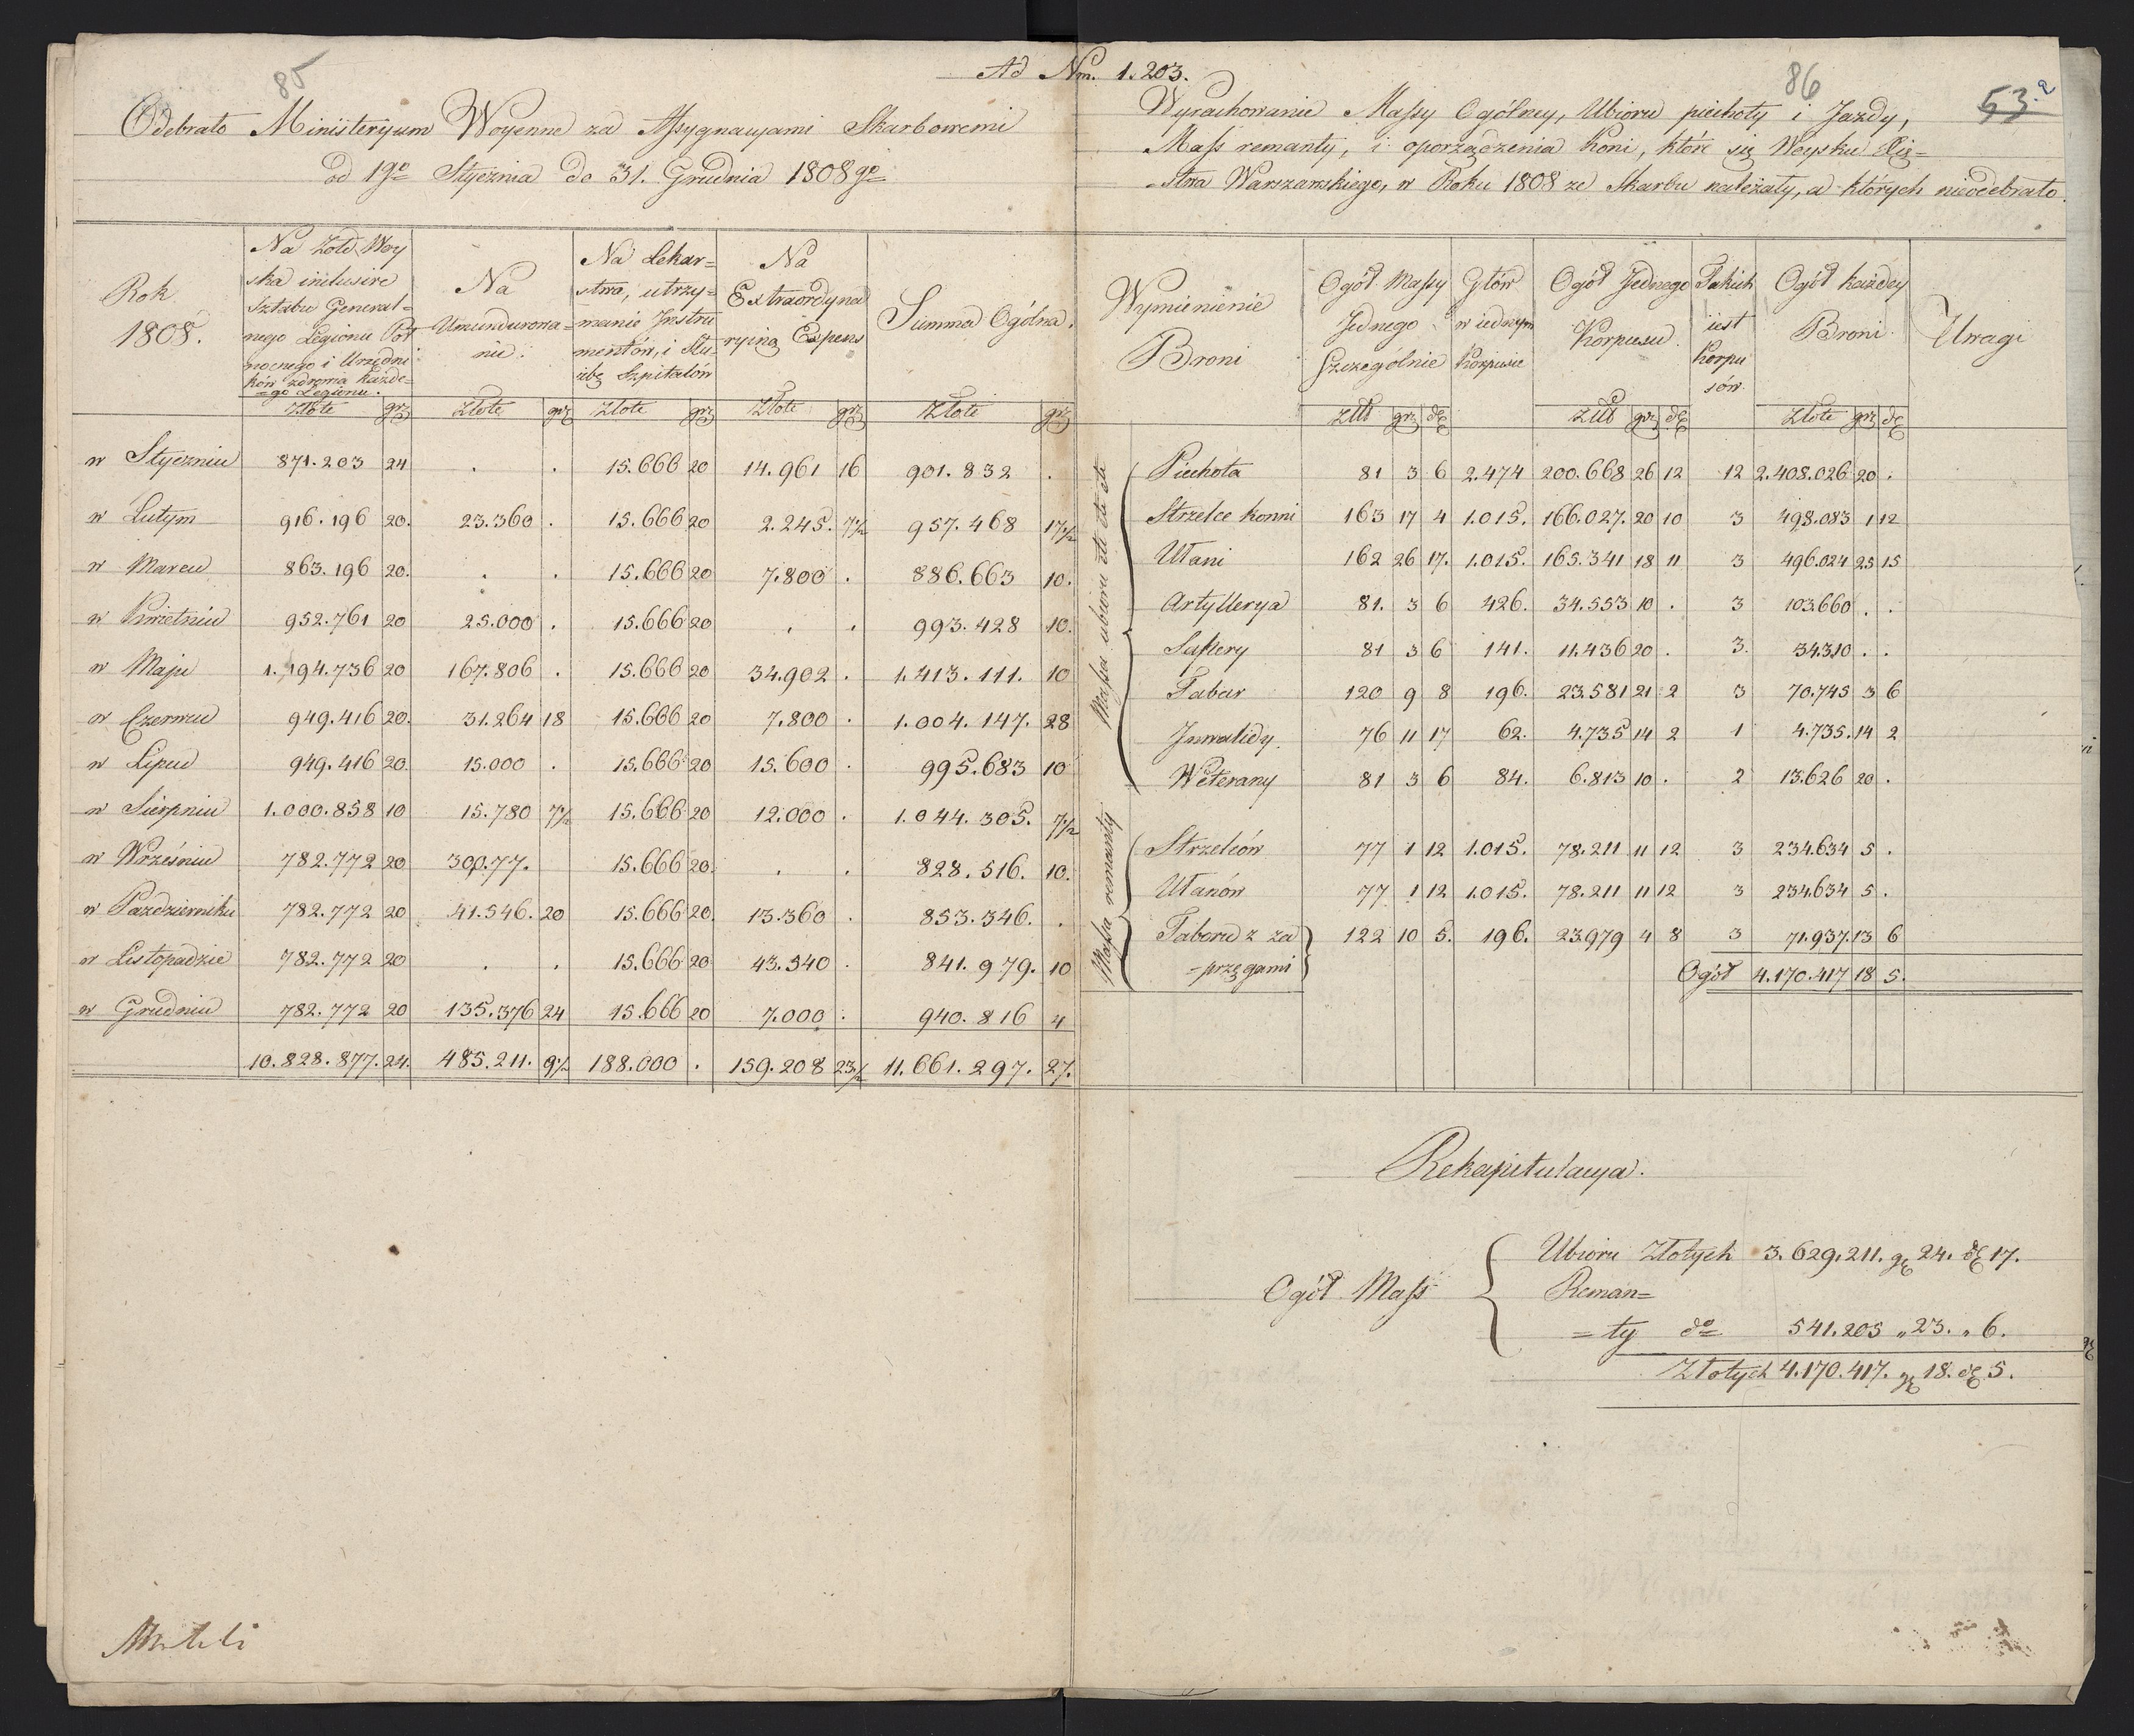 85
Ad Nm. 1.203.
Odebrało Ministeryum Woyenne za Assygnacyami Skarbowemi
od 1go Stycznia do 31. Grudnia 1808 go
Rok 1808. | Na Żołd Woyska inclusive Sztabu Generalnego Legionu Północnego i Urzędników zdrowia każdego Legionu. | Na Umundurowanie. | Na Lekarstwa, utrzymanie Instrumentów, i Służbę Szpitalów | Na Extraordynaryiną Expens | Summa Ogólna.
Złote gr | Złote gr | Złote gr | Złote gr | Złote gr
w Styczniu 871.203 24 . . 15.666 20 14.961 16 901.832 .
w Lutym 916.196 20. 23.360 . 15.666 20 2.245. 7½ 957.468 17½
w Marcu 863.196 20. . . 15.666 20 7.800 . 886.663 10.
w Kwietniu 952.761 20 25.000 . 15.666 20 . . 993.428 10.
w Maju 1.194.736 20 167.806 . 15.666 20 34.902 . 1.413.111. 10
w Czerwcu 949.416 20. 31.264 18 15.666 20 7.800 . 1.004.147. 28
w Lipcu 949.416 20. 15.000 . 15.666 20 15.600 . 995.683 10
w Sierpniu 1.000.858 10 15.780 7½ 15.666 20 12.000 . 1.044.305. 7½
w Wrześniu 782.772 20 300.77. 15.666 20. . . 828.516. 10.
w Pazdzierniku 782.772 20 41.546. 20 15.666 20. 13.360 . 853.346. .
w Listopadzie 782.772 20 . . 15.666 20 43.540 . 841.979. 10
w Grudniu 782.772 20 135.376 24 15.666 20 7.000 . 940.816 4
10.828.877. 24. 485.211. 9½ 188.000 . 159.208 23½ 11.661.297. 27.
86
53.
2
Wyrachowanie Massy Ogólney, Ubioru piechoty i Jazdy,
Mass remonty, i oporządzenia Koni, które się Woysku Xię=
=stwa Warszawskiego, w Roku 1808 ze Skarbu należały, a których nieodebrało.
Wymienienie Broni | Ogół Massy Jednego Szczególnie | Głów w iednym Korpusie | Ogół Jednego Korpusu | Takich iest Korpusów | Ogół każdey Broni | Uwagi
Złł gr d | Złł gr d | Złote gr d
Massa ubioru
Piechota 81 3 6 2.474 200.668 26 12 12 2.408.026 20 .
Strzelce konni 163 17 4 1.015. 166.027. 20 10 3 498.083 1 12
Ułani 162 26 17. 1.015. 165.341 18 11 3 496.024 25 15
Artyllerya 81. 3 6 426. 34.553 10 . 3 103.660 . .
Sappery 81 3 6 141. 11.436 20 . 3. 34.310 . .
Tabor 120 9 8 196. 23.581 21 2 3 70.745 3 6
Inwalidy. 76 11 17 62. 4.735 14 2 1 4.735. 14 2
Weterany 81 3 6 84. 6.813 10 . 2 13.626 20 .
Massa remonty
Strzelców 77 1 12 1.015. 78.211 11 12 3 234.634 5 .
Ułanów 77 1 12 1.015. 78.211 11 12 3 234.634 5 .
Taboru z za=
=przęgami 122 10 5. 196. 23.979 4 8 3 71.937. 13 6
Ogół 4.170.417 18 5.
Rekapitulacya.
Ogół Mass
Ubioru Złotych 3.629.211. gr 24. d 17.
Reman=
=ty do 541.205 „ 23. „ 6.
Złotych 4.170.417. gr 18. d 5.